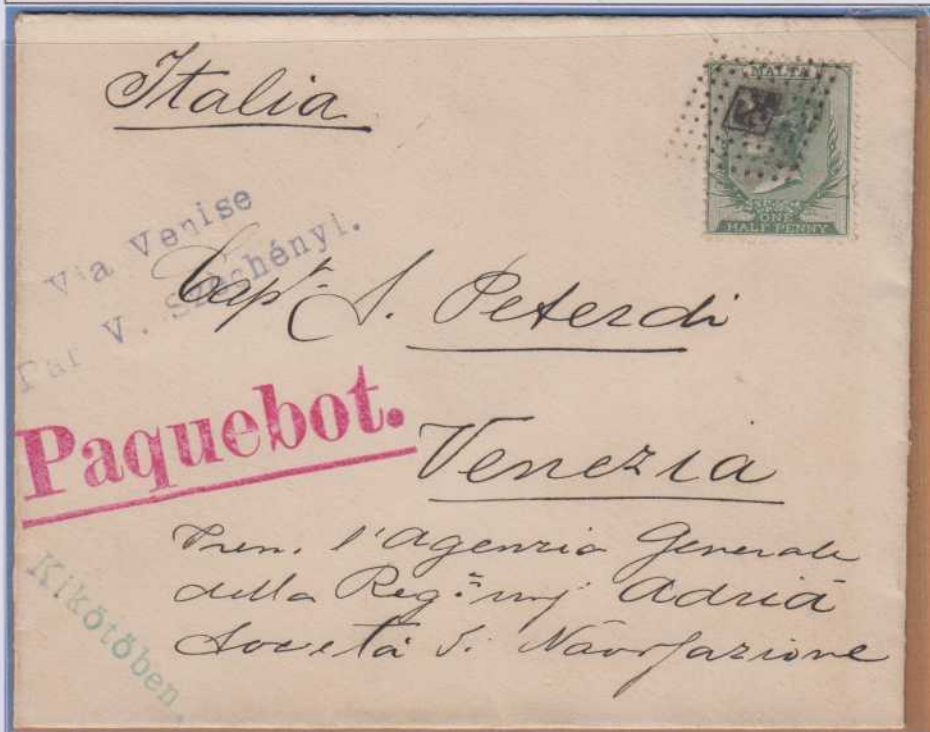 Italia
MALTA
ONE
HALF PENNY
Via Venise
Par V. Széchényi.
Capt. S. Peterdi
Paquebot.
Venezia
l'Agenzia Generale
della Reg. Adria
Società di Navigazione
Kikötőben.